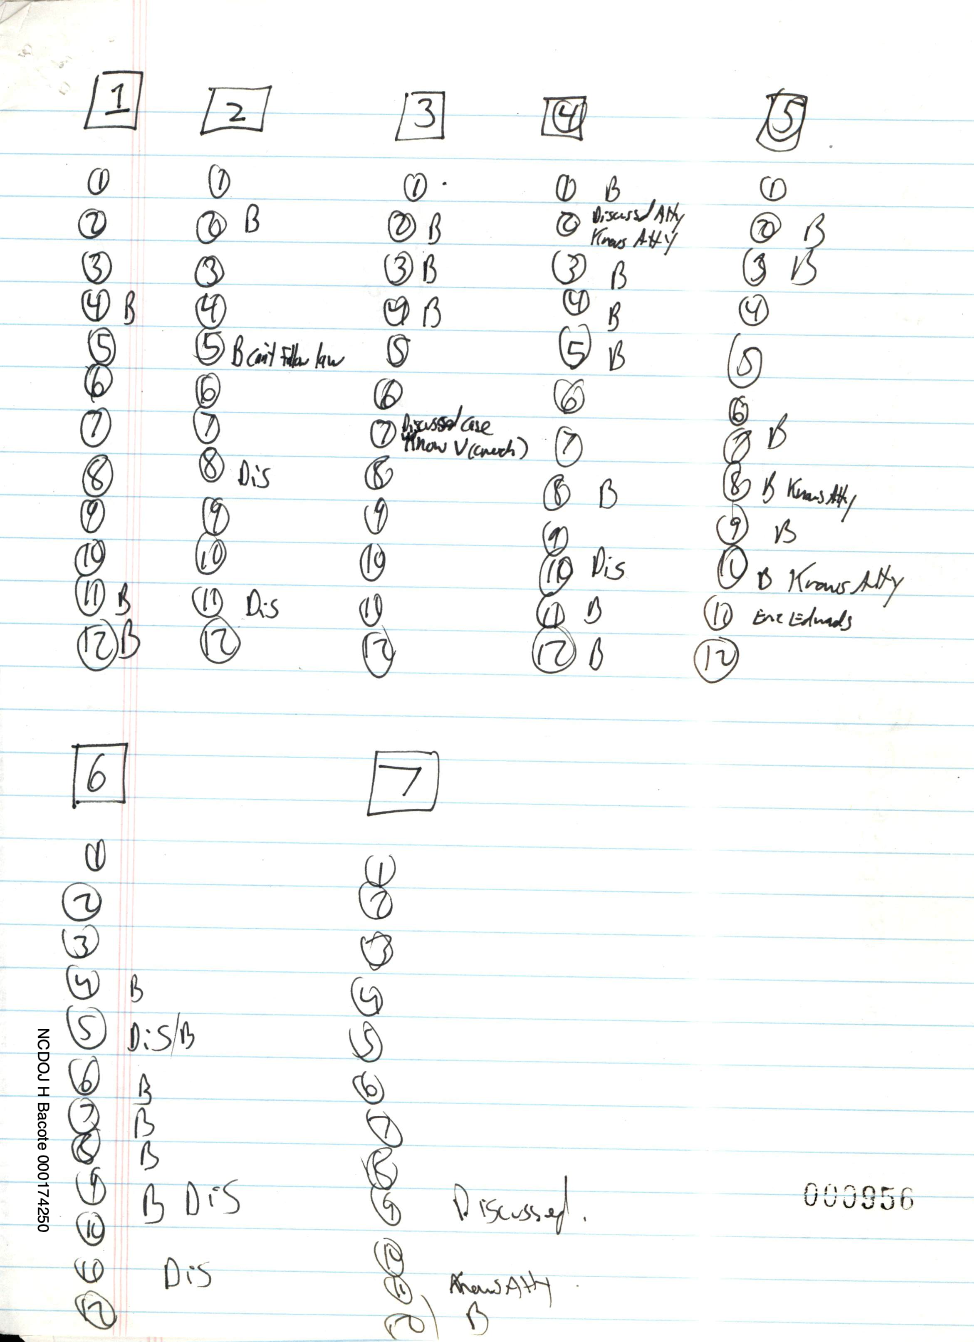 1
1
2
3
4 B
5
6
7
8
9
10
11 B
12 B
2
1
2 B
3
4
5 B can't follow law
6
7
8 Dis
9
10
11 Dis
12
3
1
2 B
3 B
4 B
5
6
7 Discussed case
Know V (church)
8
9
10
11
12
4
1 B
2 Discussed Atty
Knows Atty
3 B
4 B
5 B
6
7
8 B
9
10 Dis
11 B
12 B
5
1
2 B
3 B
4
5
6
7 B
8 B Knows Atty
9 B
10 B Knows Atty
11 Eric Edwards
12
6
1
2
3
4 B
5 Dis/B
6 B
7 B
8 B
9 B Dis
10
11 Dis
12
7
1
2
3
4
5
6
7
8
9 Discussed.
10
11 Knows Atty
12 B
NCDOJ H Bacote 000174250
000956